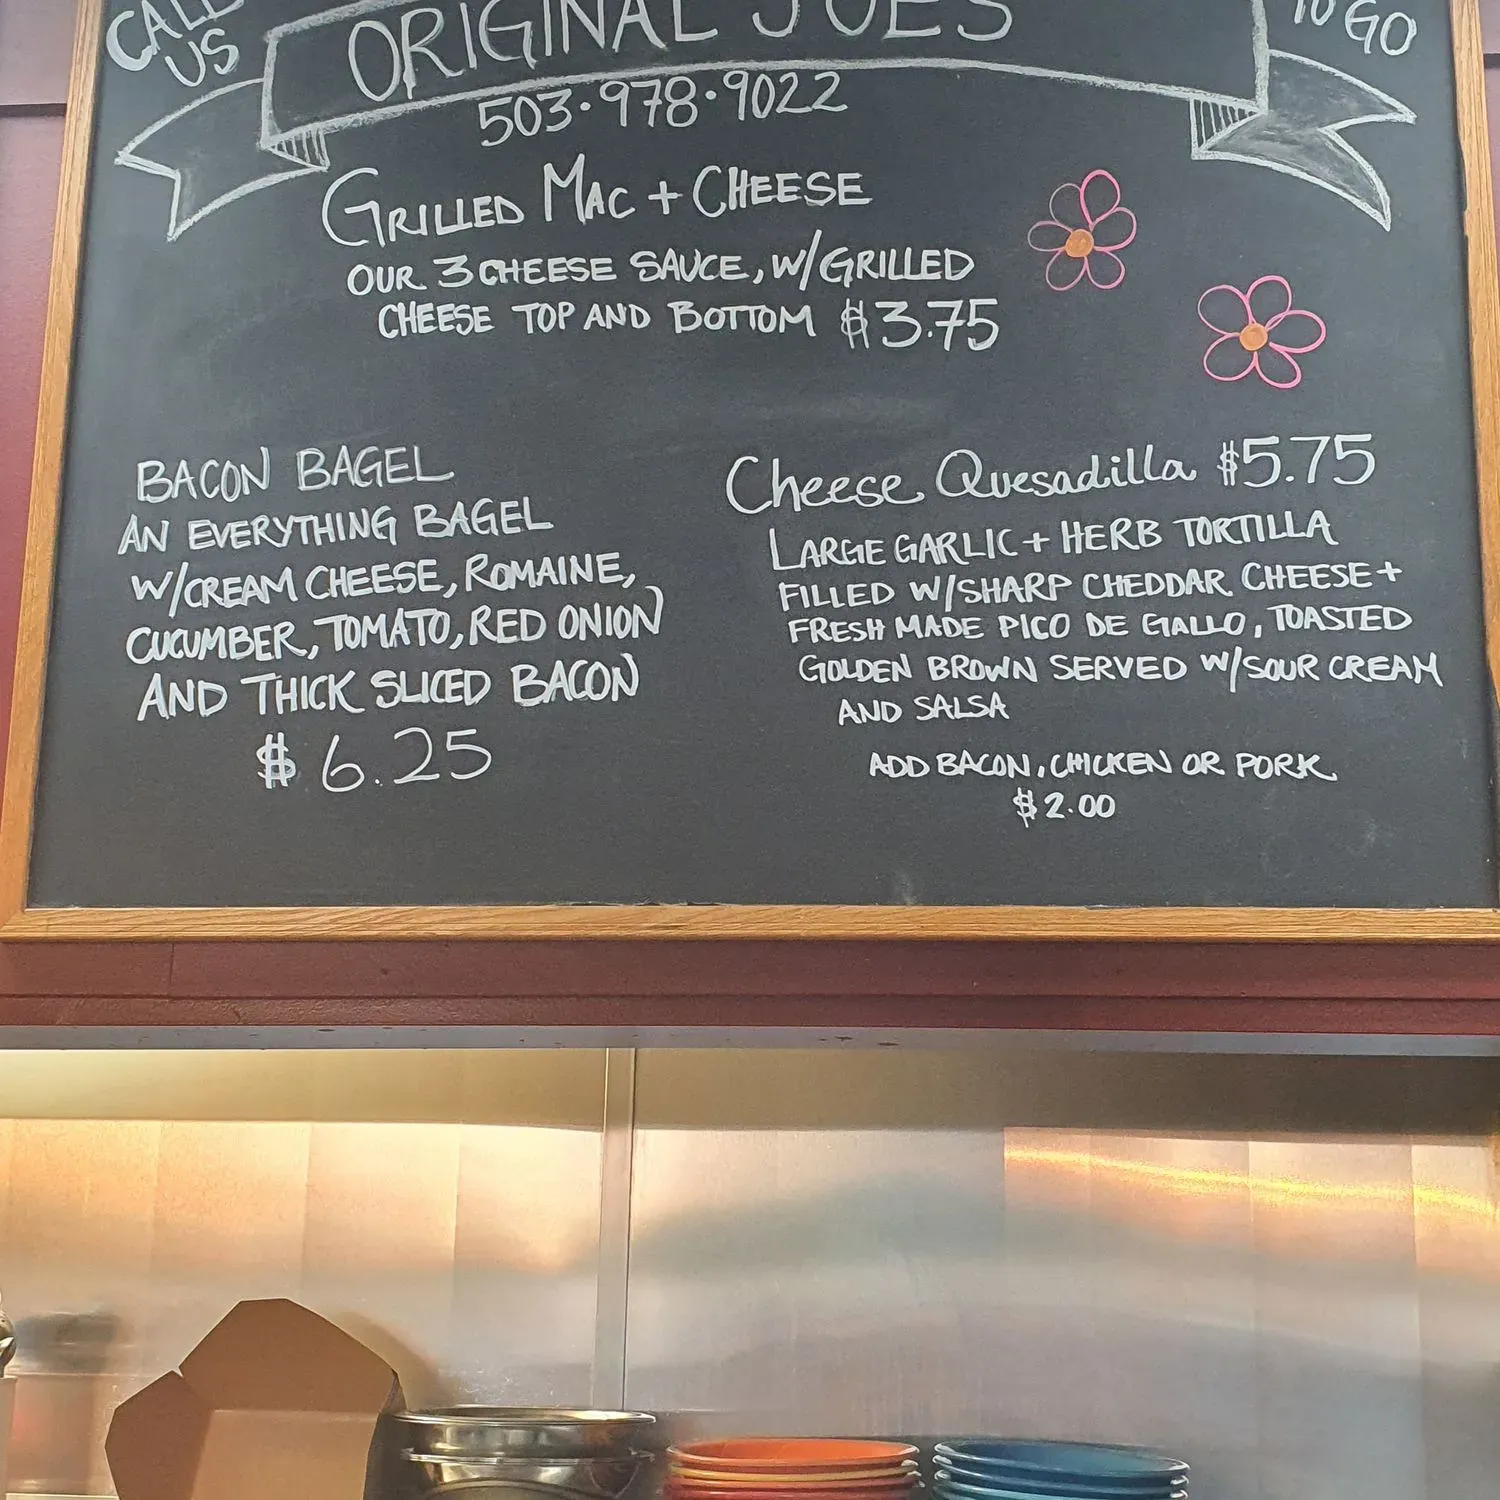 CALL
US
ORIGINAL JOES
TO GO
503·978·9022
GRILLED MAC + CHEESE
OUR 3 CHEESE SAUCE, W/GRILLED
CHEESE TOP AND BOTTOM $3.75
BACON BAGEL
AN EVERYTHING BAGEL
W/CREAM CHEESE, ROMAINE,
CUCUMBER, TOMATO, RED ONION
AND THICK SLICED BACON
$6.25
Cheese Quesadilla $5.75
LARGE GARLIC + HERB TORTILLA
FILLED W/SHARP CHEDDAR CHEESE +
FRESH MADE PICO DE GALLO, TOASTED
GOLDEN BROWN SERVED W/SOUR CREAM
AND SALSA
ADD BACON, CHICKEN OR PORK
$2.00